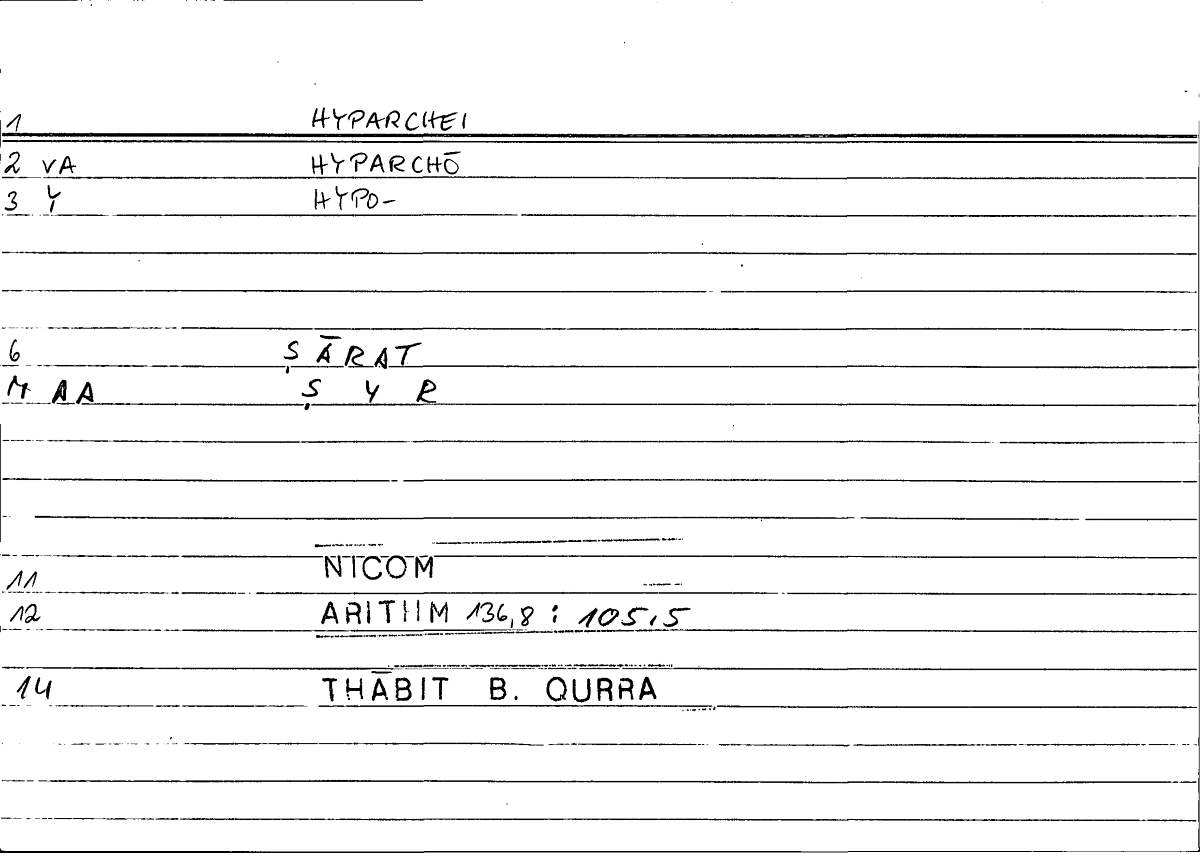 1 HYPARCHEI
2 VA HYPARCHŌ
3 Y HYPO-
6 ṢĀRAT
M AA Ṣ Y R
11 NICOM
12 ARITHM 136,8 : 105,5
14 THĀBIT B. QURRA